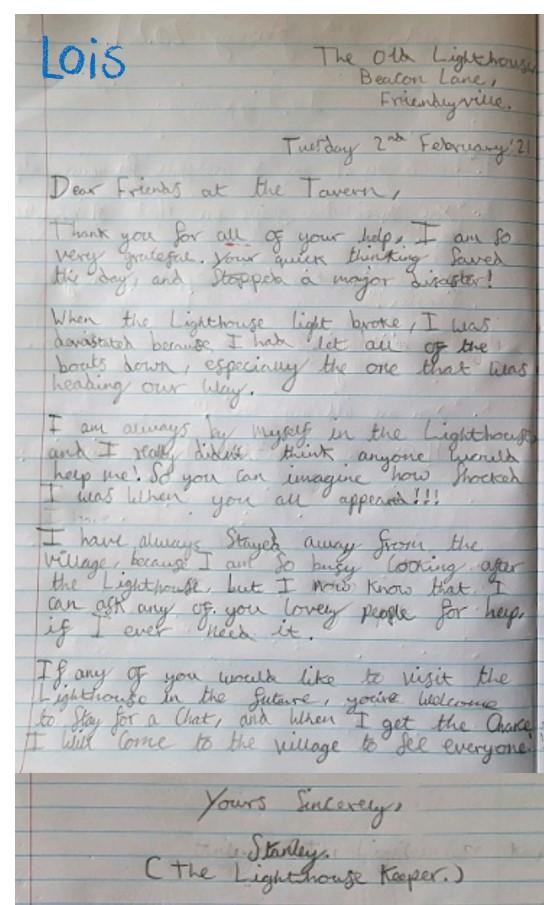 Lois
The Old Lighthouse
Beacon Lane,
Friendlyville.
Tuesday 2nd February '21
Dear Friends at the Tavern,
Thank you for all of your help. I am so
very grateful. Your quick thinking saved
the day, and stopped a major disaster!
When the Lighthouse light broke, I was
devastated because I had let all of the
boats down, especially the one that was
heading our way.
I am always by myself in the Lighthouse,
and I really didn't think anyone would
help me! So you can imagine how shocked
I was when you all appeared!!!
I have always stayed away from the
village, because I am so busy looking after
the Lighthouse, but I now know that I
can ask any of you lovely people for help,
if I ever need it.
If any of you would like to visit the
Lighthouse in the future, you're welcome
to stay for a chat, and when I get the chance
I will come to the village to see everyone!
Yours Sincerely,
Stanley.
(The Lighthouse Keeper.)